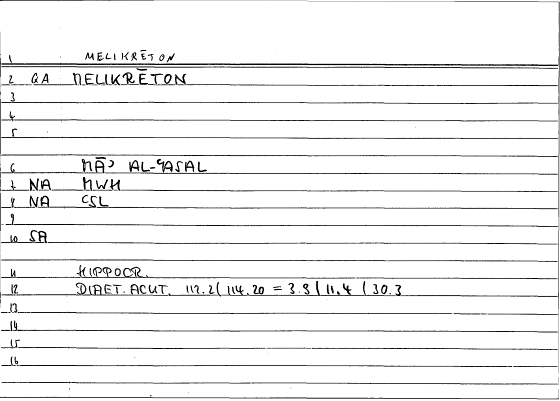 1 MELIKRĒTON
2 QA MELIKRĒTON
3
4
5
6 MĀʾ AL-ʿASAL
7 NA MWH
8 NA ʿSL
9
10 SA
11 HIPPOCR.
12 DIAET. ACUT. 112.2( 114.20 = 3.8 ( 11.4 ( 30.3
13
14
15
16